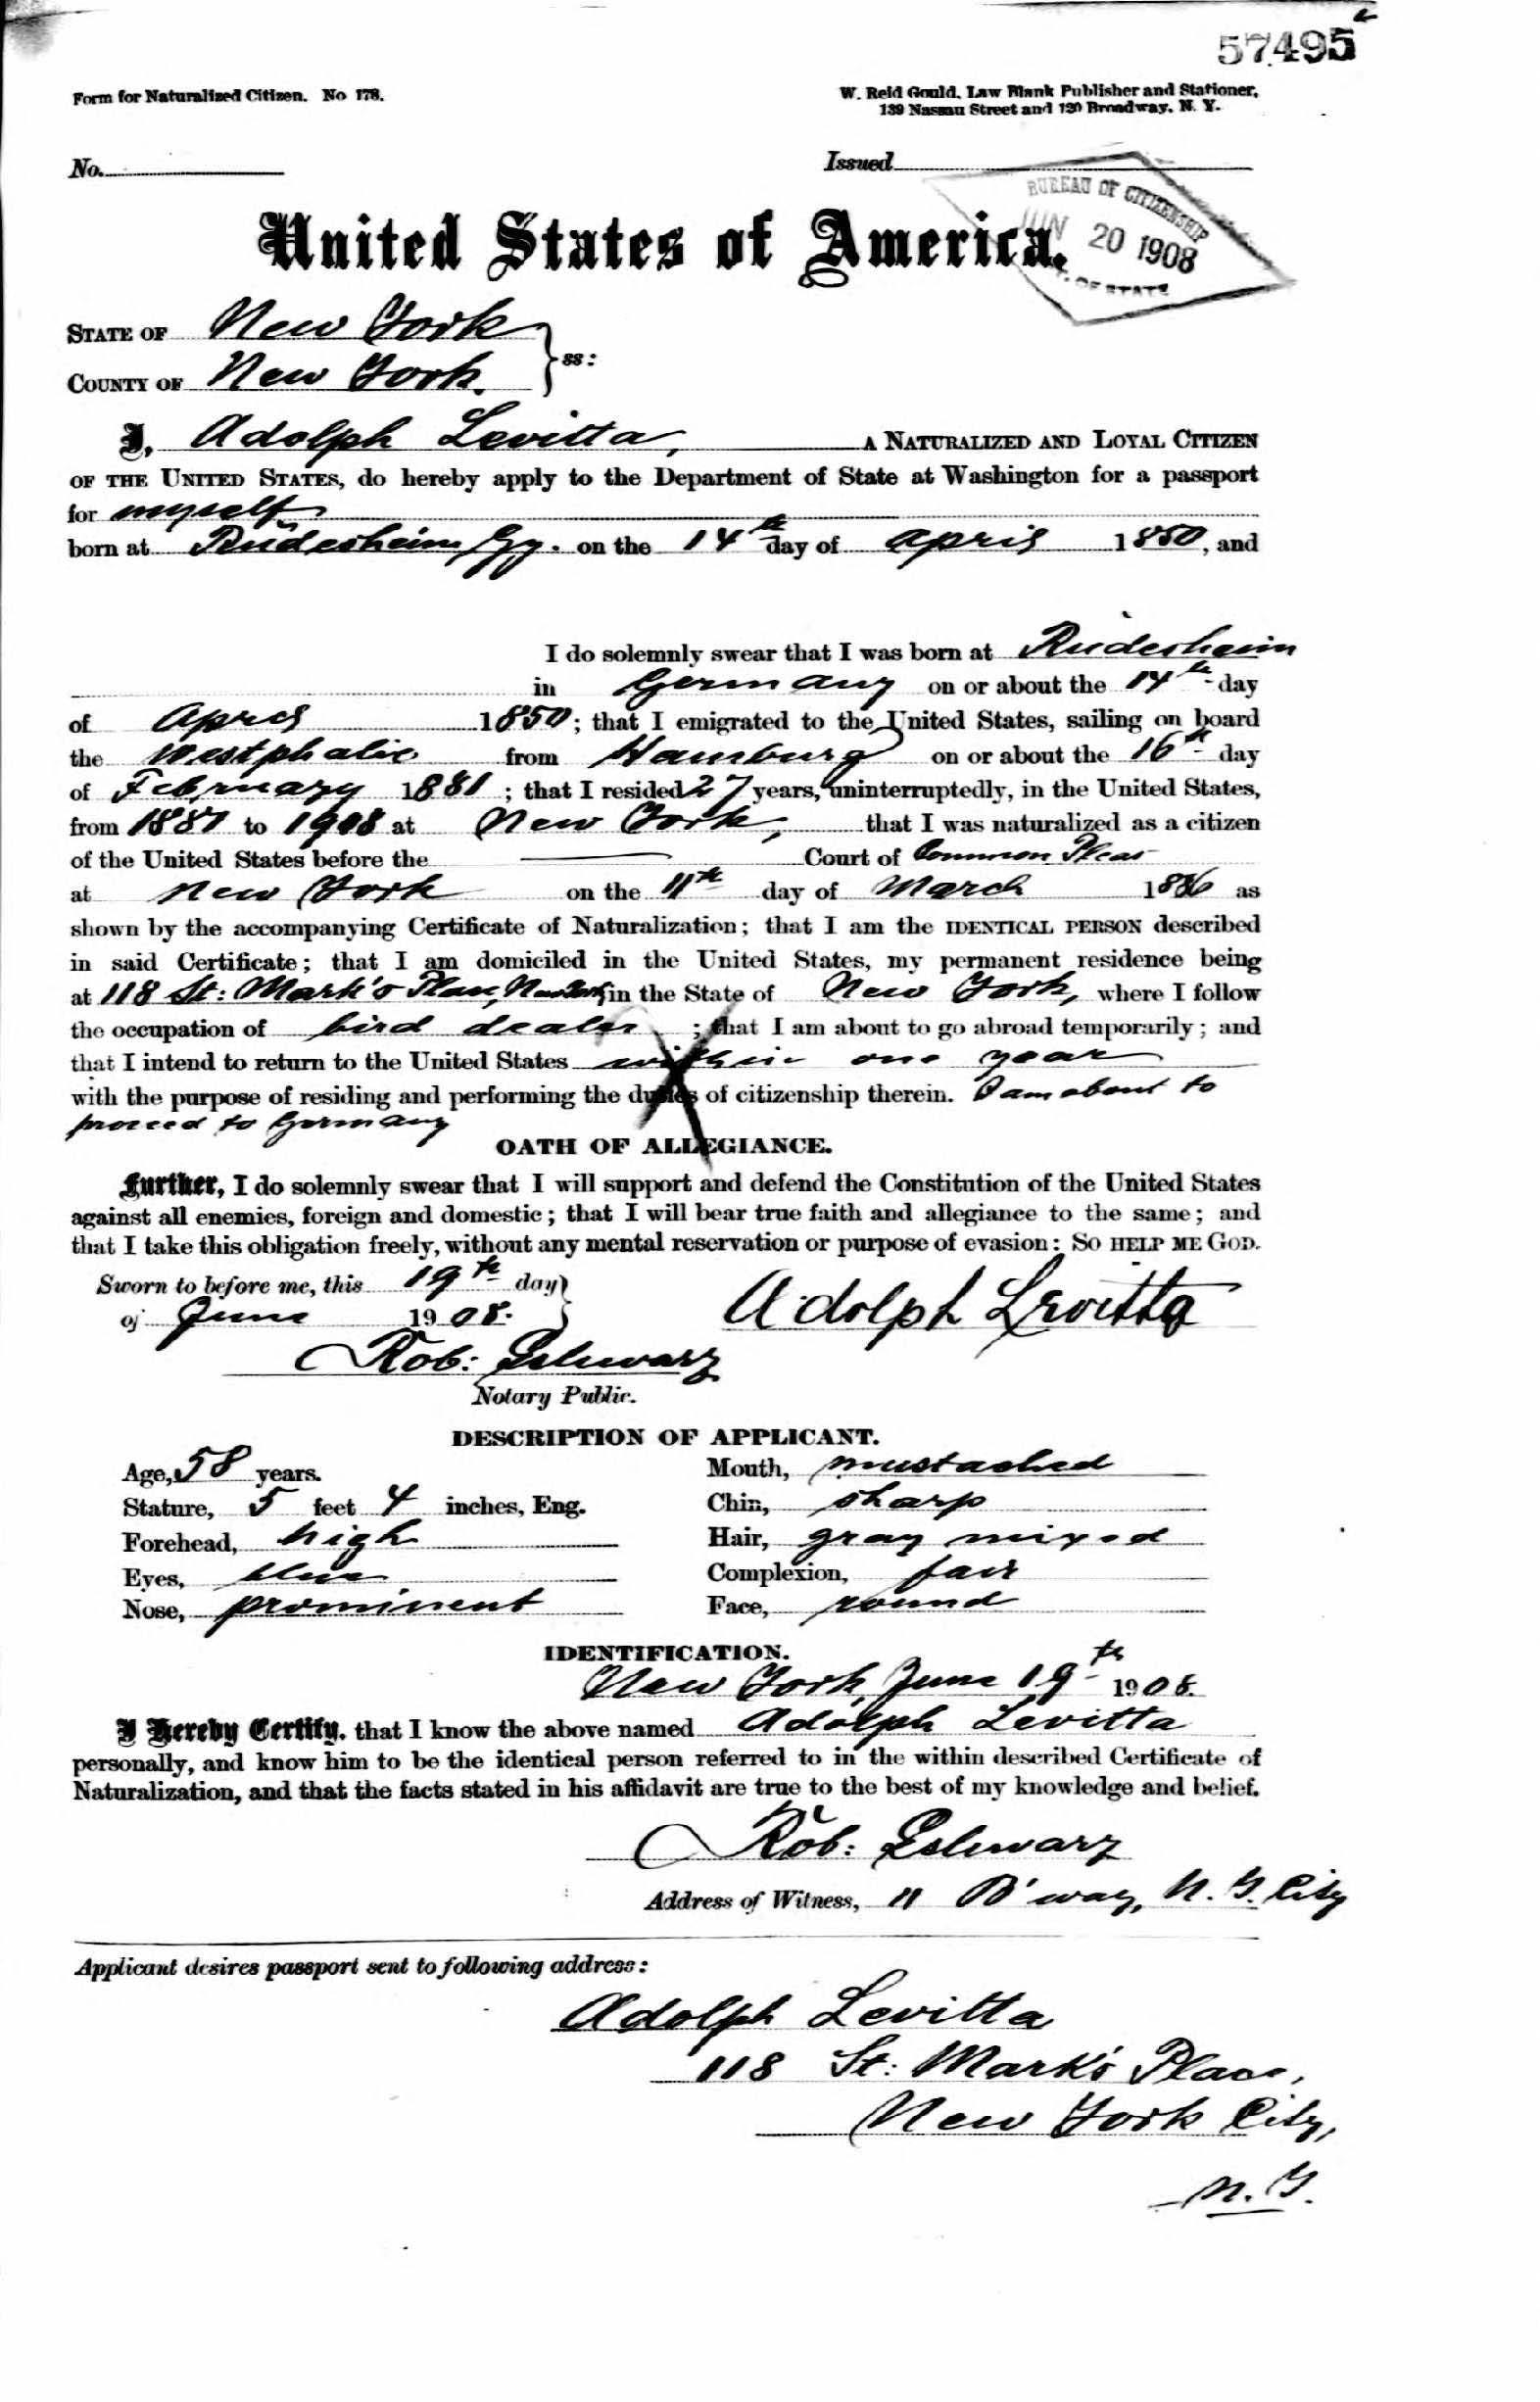 57495
Form for Naturalized Citizen. No 178.
W. Reid Gould, Law Blank Publisher and Stationer,
139 Nassau Street and 120 Broadway, N. Y.
No.
Issued
BUREAU OF CITIZENSHIP
JUN 20 1908
OF STATE
United States of America.
STATE OF New York
COUNTY OF New York. } ss:
I, Adolph Levitta, A NATURALIZED AND LOYAL CITIZEN
OF THE UNITED STATES, do hereby apply to the Department of State at Washington for a passport
for myself
born at Rüdesheim, Gy. on the 14th day of April 1850, and
I do solemnly swear that I was born at Rüdesheim
in Germany on or about the 14th day
of April 1850; that I emigrated to the United States, sailing on board
the Westphalia from Hamburg on or about the 16th day
of February 1881; that I resided 27 years, uninterruptedly, in the United States,
from 1881 to 1908 at New York, that I was naturalized as a citizen
of the United States before the Court of Common Pleas
at New York on the 11th day of March 1886 as
shown by the accompanying Certificate of Naturalization; that I am the IDENTICAL PERSON described
in said Certificate; that I am domiciled in the United States, my permanent residence being
at 118 St: Mark's Place, New York in the State of New York, where I follow
the occupation of bird dealer; that I am about to go abroad temporarily; and
that I intend to return to the United States within one year
with the purpose of residing and performing the duties of citizenship therein. I am about to
proceed to Germany
OATH OF ALLEGIANCE.
Further, I do solemnly swear that I will support and defend the Constitution of the United States
against all enemies, foreign and domestic; that I will bear true faith and allegiance to the same; and
that I take this obligation freely, without any mental reservation or purpose of evasion: SO HELP ME GOD.
Sworn to before me, this 19th day
of June 1908.
Adolph Levitta
Rob: Schwarz
Notary Public.
DESCRIPTION OF APPLICANT.
Age, 58 years.
Mouth, mustached
Stature, 5 feet 4 inches, Eng.
Chin, sharp
Forehead, high
Hair, gray mixed
Eyes, blue
Complexion, fair
Nose, prominent
Face, round
IDENTIFICATION.
New York, June 19th 1908.
I Hereby Certify, that I know the above named Adolph Levitta
personally, and know him to be the identical person referred to in the within described Certificate of
Naturalization, and that the facts stated in his affidavit are true to the best of my knowledge and belief.
Rob: Schwarz
Address of Witness, 11 B'way, N. Y. City
Applicant desires passport sent to following address:
Adolph Levitta
118 St: Mark's Place,
New York City,
N. Y.